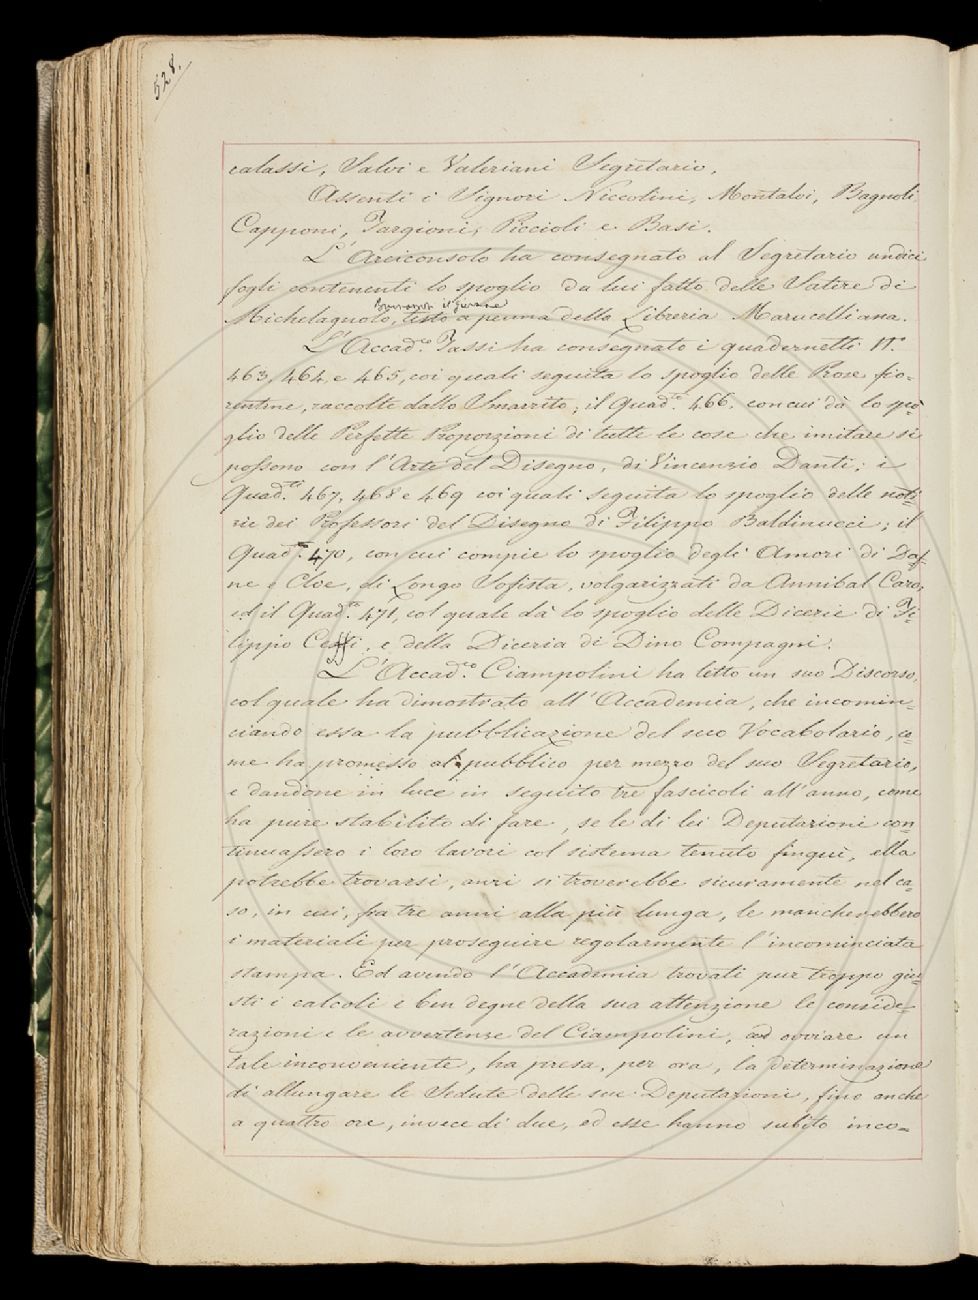 528.
calassi, Salvi e Valeriani Segretario.
Assenti i Signori Niccolini, Montalvi, Bagnoli,
Capponi, Targioni, Piccioli e Basi.
L'Arciconsolo ha consegnato al Segretario undici
fogli contenenti lo spoglio da lui fatto delle Satire di
Buonarroti il giovane
Michelagnolo, testo a penna della Libreria Marucelliana.
L'Accad.co Tassi ha consegnato i quadernetti N.°
463, 464, e 465, coi quali seguita lo spoglio delle Prose fio=
rentine, raccolte dallo Smarrito; il Quad.tto 466. con cui dà lo spo=
glio delle Perfette Proporzioni di tutte le cose che imitare si
possono con l'Arte del Disegno, di Vincenzio Danti; i
Quad.tti 467, 468 e 469 coi quali seguita lo spoglio delle noti=
zie dei Professori del Disegno di Filippo Baldinucci; il
Quad.tto 470, con cui compie lo spoglio degli Amori di Daf=
ne e Cloe, di Longo Sofista, volgarizzati da Annibal Caro;
ed il Quad.tto 471, col quale dà lo spoglio delle Dicerie di Fi=
lippo Ceffi, e della Diceria di Dino Compagni.
L'Accad.co Ciampolini ha letto un suo Discorso,
col quale ha dimostrato all'Accademia, che incomin=
ciando essa la pubblicazione del suo Vocabolario, co=
me ha promesso al pubblico per mezzo del suo Segretario,
e dandone in luce in seguito tre fascicoli all'anno, come
ha pure stabilito di fare, se le di lei Deputazioni con=
tinuassero i loro lavori col sistema tenuto finqui, ella
potrebbe trovarsi, anzi si troverebbe sicuramente nel ca=
so, in cui, fra tre anni alla più lunga, le mancherebbero
i materiali per proseguire regolarmente l'incominciata
stampa. Ed avendo l'Accademia trovati pur troppo giu=
sti i calcoli e ben degne della sua attenzione le conside=
razioni e le avvertenze del Ciampolini, ad ovviare un
tale inconveniente, ha presa, per ora, la determinazione
di allungare le Sedute delle sue Deputazioni, fino anche
a quattro ore, invece di due, ed esse hanno subito inco=